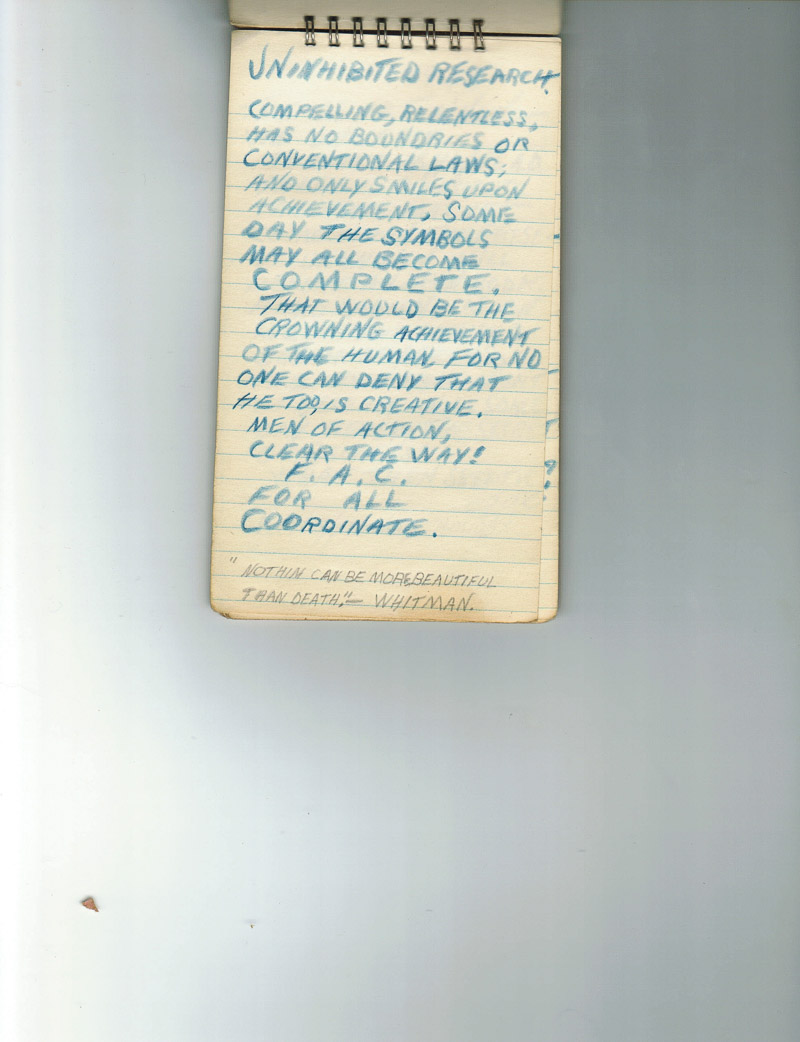 UNINHIBITED RESEARCH.
COMPELLING, RELENTLESS,
HAS NO BOUNDRIES OR
CONVENTIONAL LAWS;
AND ONLY SMILES UPON
ACHIEVEMENT. SOME
DAY THE SYMBOLS
MAY ALL BECOME
COMPLETE.
THAT WOULD BE THE
CROWNING ACHIEVEMENT
OF THE HUMAN. FOR NO
ONE CAN DENY THAT
HE TOO, IS CREATIVE.
MEN OF ACTION,
CLEAR THE WAY!
F. A. C.
FOR ALL
COORDINATE.
"NOTHIN CAN BE MORE BEAUTIFUL
THAN DEATH."— WHITMAN.